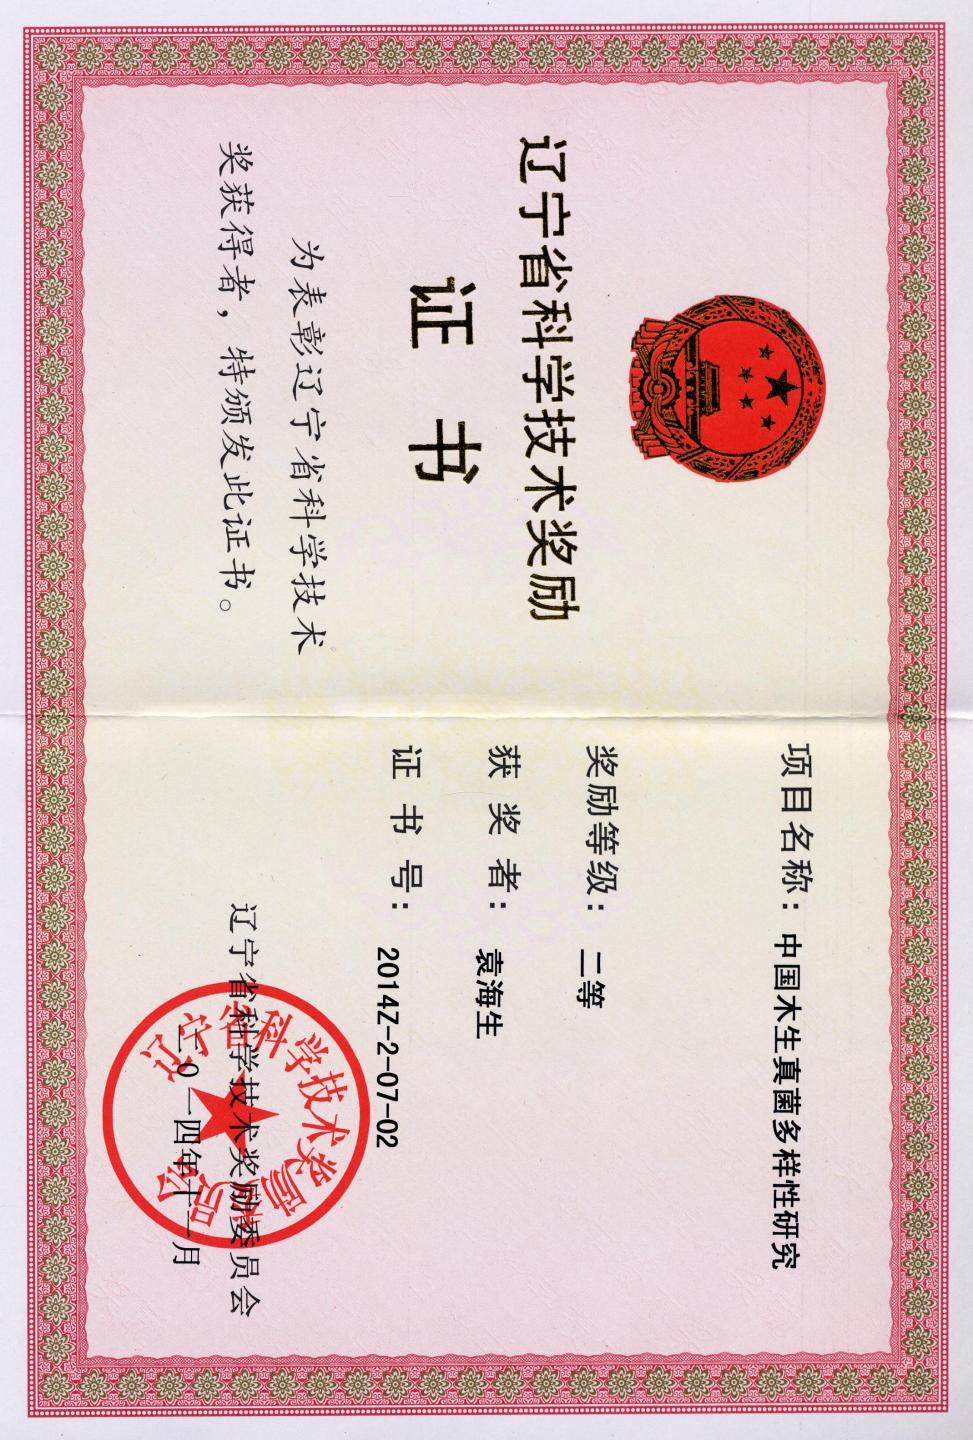 辽宁省科学技术奖励
证 书
为表彰辽宁省科学技术
奖获得者，特颁发此证书。
项目名称：中国木生真菌多样性研究
奖励等级：二等
获 奖 者：袁海生
证 书 号：2014Z-2-07-02
辽宁省科学技术奖励委员会
二0一四年十一月
辽宁省科学技术奖励委员会